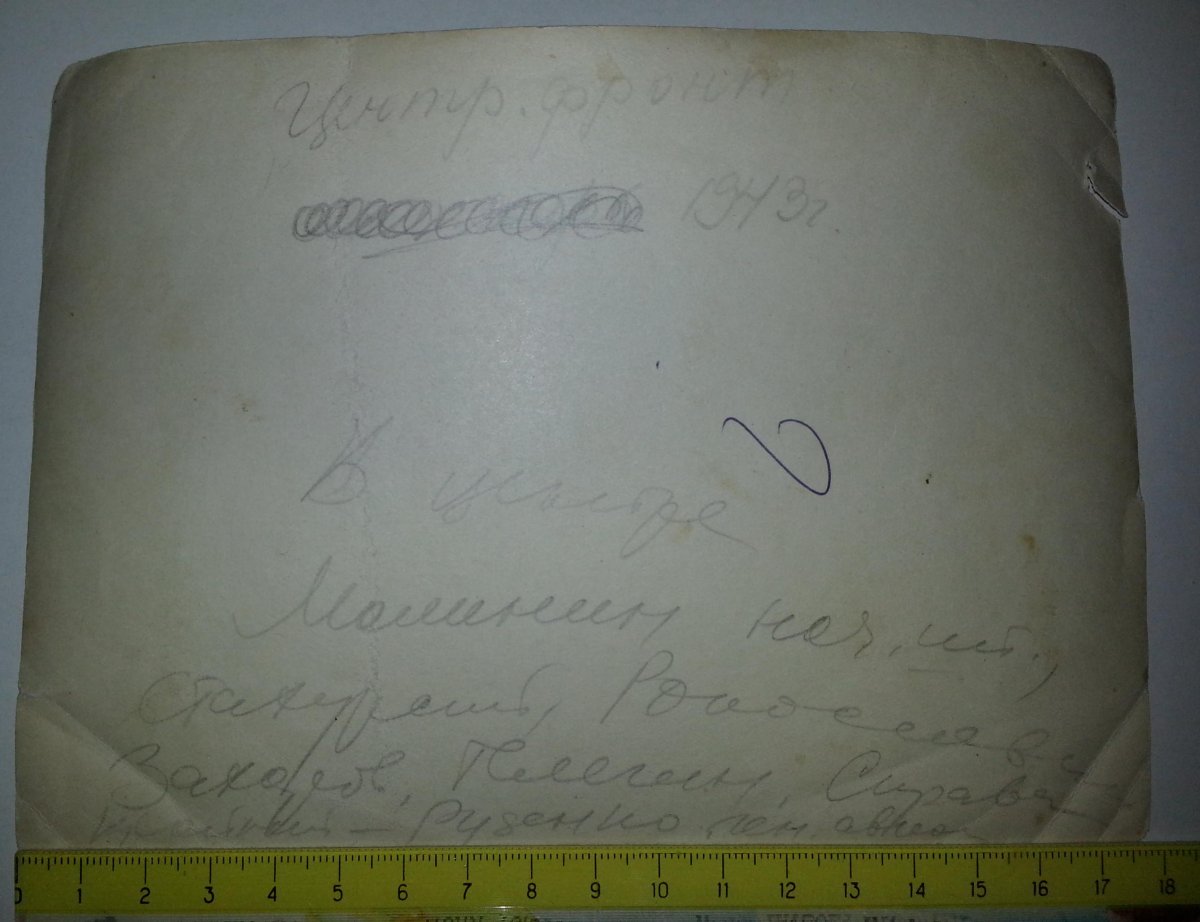 Центр. фронт
1943г.
В центре
Малинин нач. шт.,
Стахурский, Рокоссовск
Захаров, Телегин, Справа
крайний – Руденко ген. авиац
0 1 2 3 4 5 6 7 8 9 10 11 12 13 14 15 16 17 18